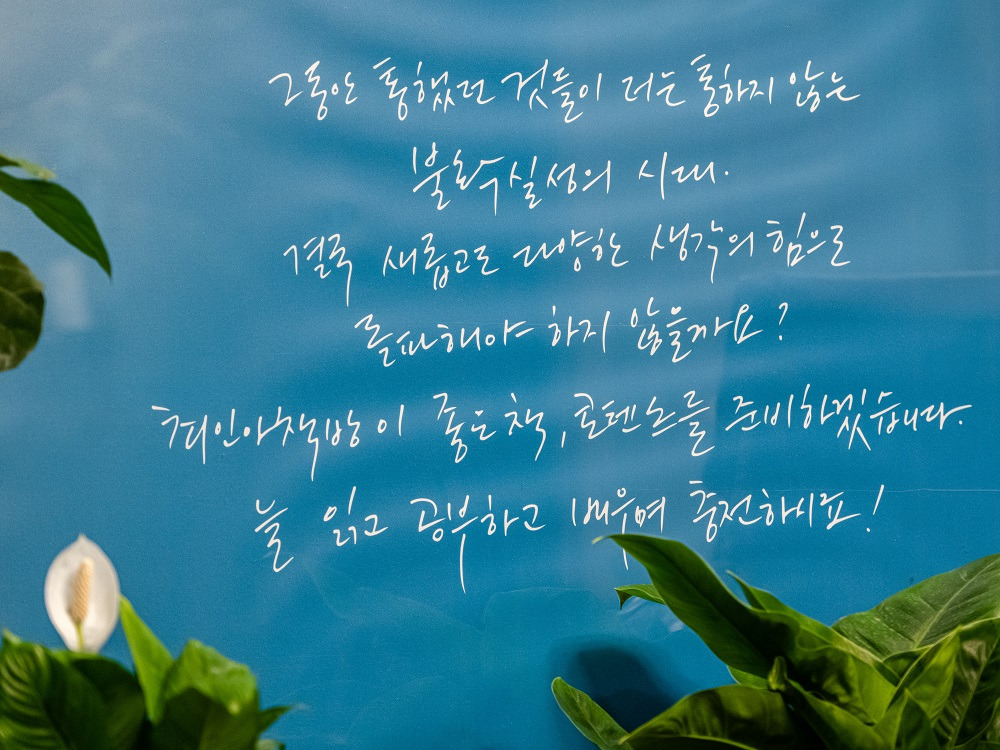 그동안 통했던 것들이 더는 통하지 않는
불확실성의 시대.
결국 새롭고도 다양한 생각의 힘으로
돌파해야 하지 않을까요?
최인아책방이 좋은 책, 콘텐츠를 준비하겠습니다.
늘 읽고 공부하고 배우며 충전하시죠!